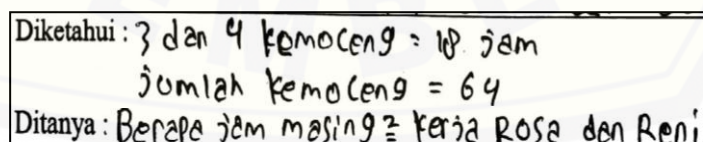 Diketahui : 3 dan 4 kemoceng = 18 jam
jumlah kemoceng = 64
Ditanya : Berapa jam masing² kerja Rosa dan Reni